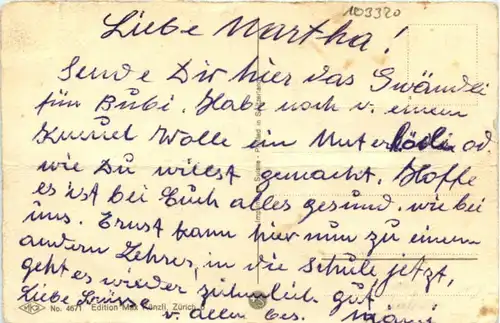 103320
Liebe Martha!
Sende Dir hier das Gwändli
für Bubi. Habe noch v. einem
Knäuel Wolle ein Unterhösli od.
wie Du willst gemacht. Hoffe
es ist bei Euch alles gesund, wie bei
uns. Ernst kann hier nun zu einem
andern Lehrer, in die Schule jetzt,
geht es wieder ziemlich gut
Liebe Grüsse v. allen bes.
No. 4671 Edition Max Künzli, Zürich 6
Imprimé en Suisse - Printed in Switzerland